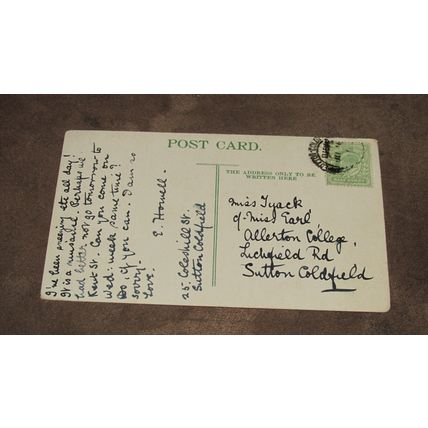 POST CARD.
THE ADDRESS ONLY TO BE
WRITTEN HERE
I've been sneezing the all day!
It is a nuisance. Perhaps we
had better not go tomorrow to
Kent St. Can you come on
Wed. week same time?
Do, if you can. I am so
sorry.
Love.
E. Howell.
25. Coleshill St.
Sutton Coldfield
Miss Tyack
c/o Miss Earl
Allerton College,
Lichfield Rd
Sutton Coldfield